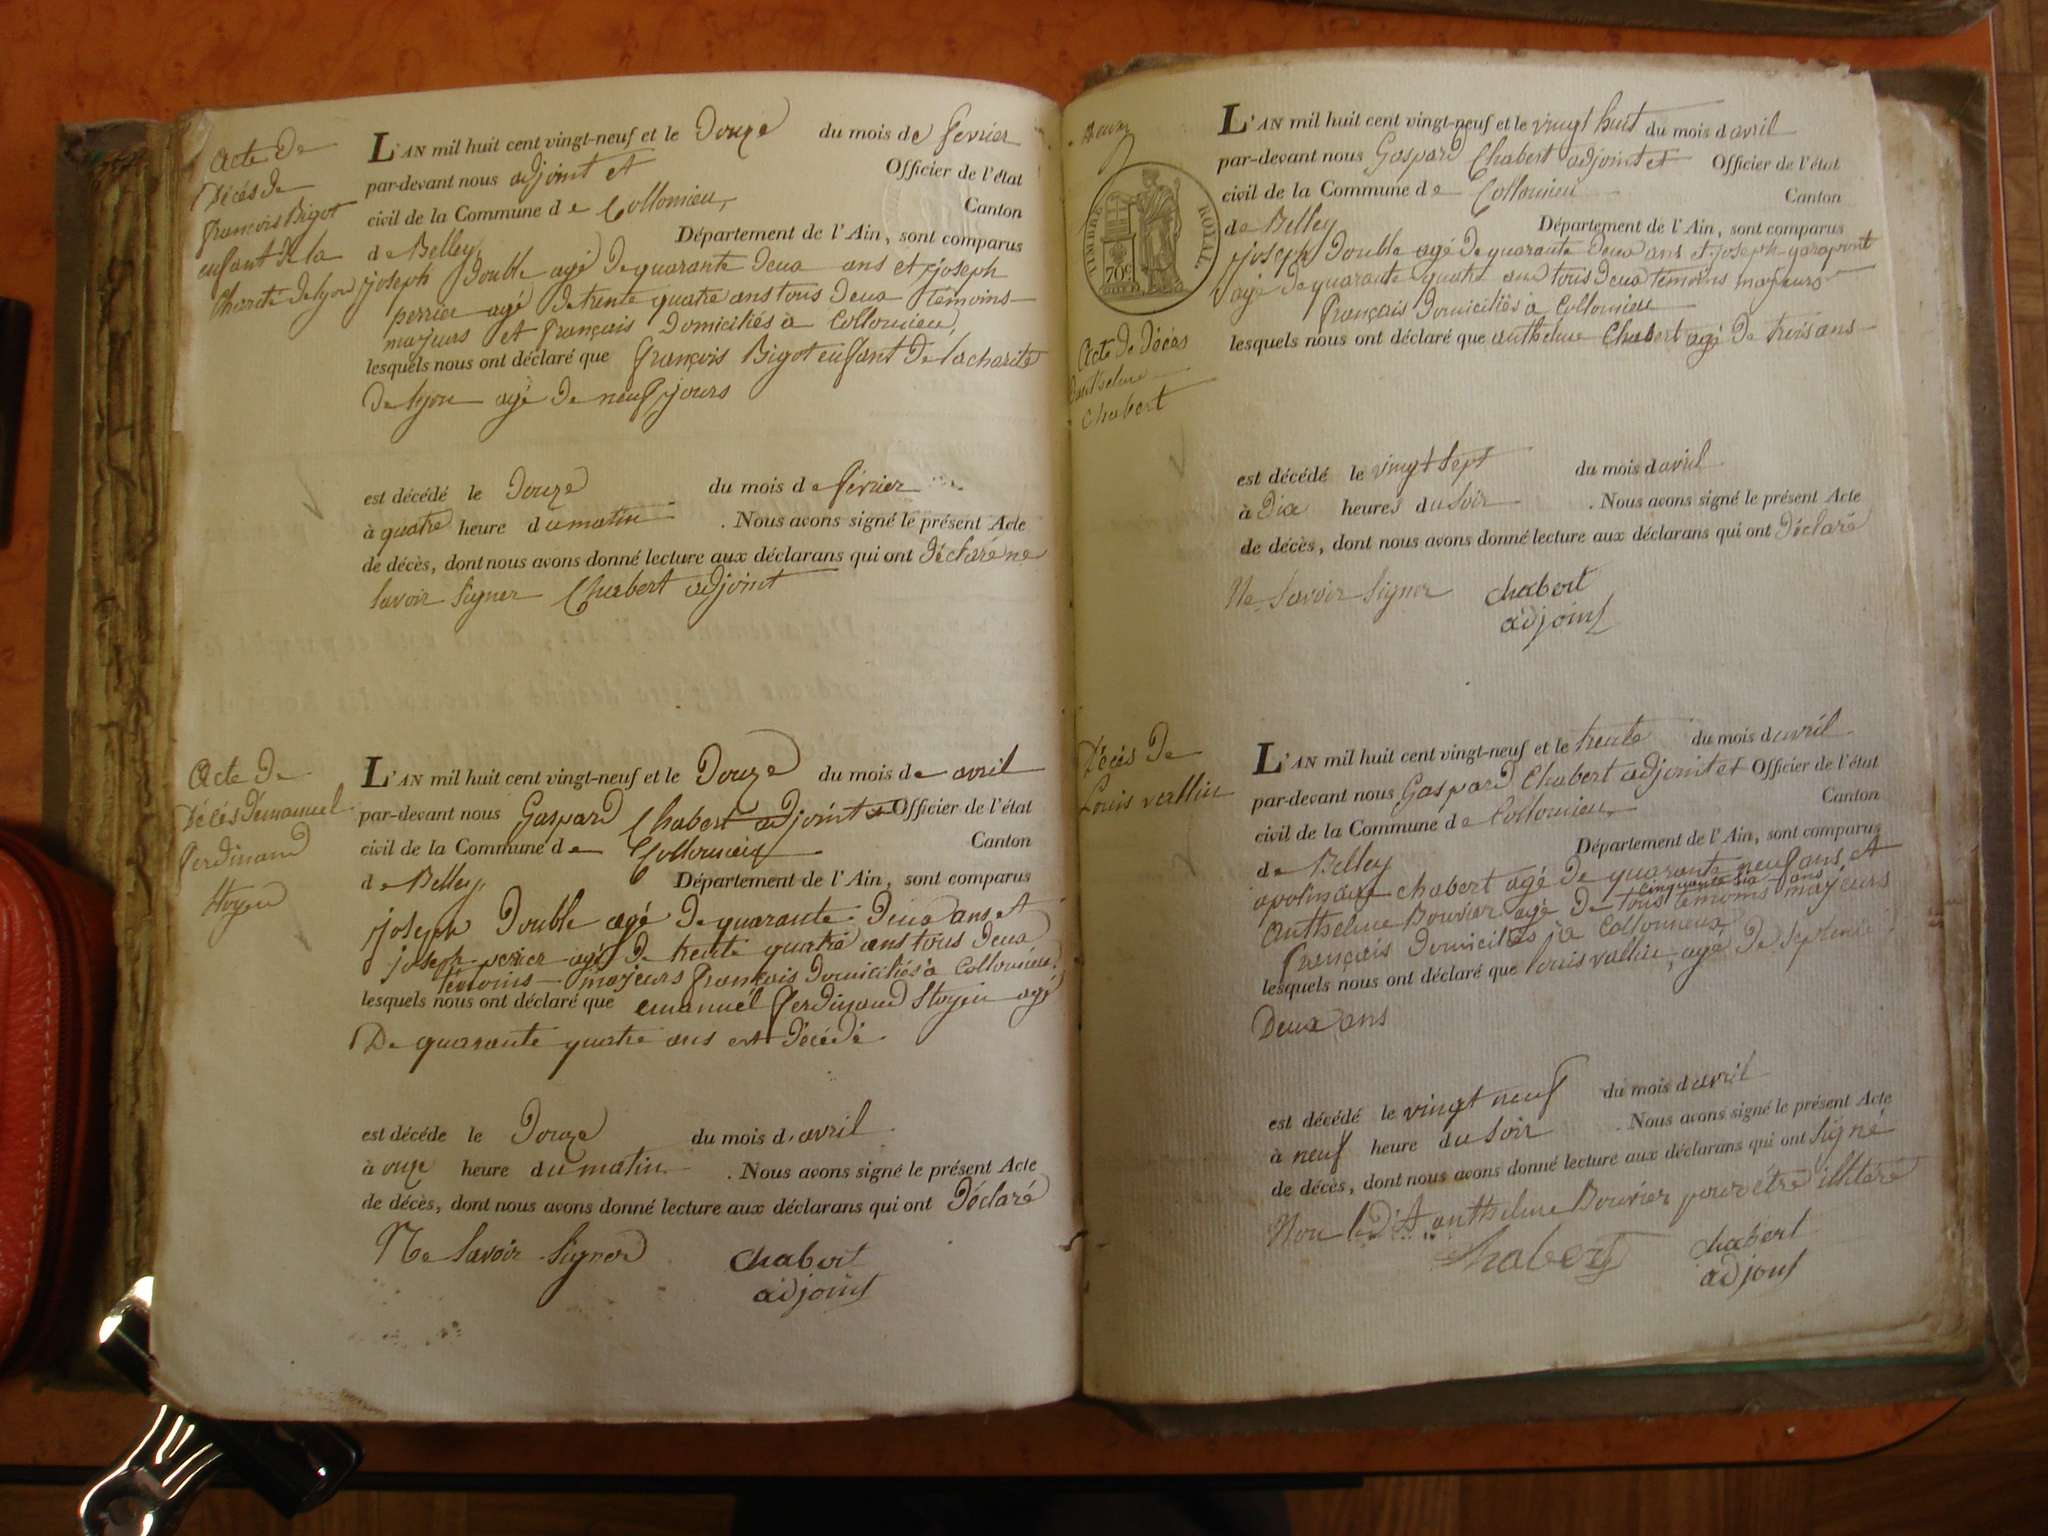 Acte de
Décés de
françois Bigot
enfant de la
Charité de lyon
L'AN mil huit cent vingt-neuf et le Douze du mois de fevrier
par-devant nous adjoint et Officier de l'état
civil de la Commune de Collomieu, Canton
de Belley Département de l'Ain, sont comparus
joseph Double agé De quarante Deux ans et joseph
perrier agé De trente quatre ans tous Deux témoins
majeurs et français Domiciliés à Collomieu,
lesquels nous ont déclaré que françois Bigot enfant De la charité
De lyon agé De neuf jours
est décédé le Douze du mois de février
à quatre heure du matin . Nous avons signé le présent Acte
de décès, dont nous avons donné lecture aux déclarans qui ont Déclaré ne
savoir signer Chabert adjoint
Acte De
Décés D'emanuel
ferdinand
Stoyen
L'AN mil huit cent vingt-neuf et le Douze du mois de avril
par-devant nous Gaspard Chabert adjoint et Officier de l'état
civil de la Commune de Collomieu Canton
de Belley, Département de l'Ain, sont comparus
joseph Double agé De quarante Deux ans et
joseph perier agé De trente quatre ans tous Deux
témoins majeurs français Domiciliés à Collomieu
lesquels nous ont déclaré que emanuél ferdinand Stoyen agé
De quarante quatre ans est Décédé
est décéde le Douze du mois d'avril
à onze heure du matin . Nous avons signé le présent Acte
de décès, dont nous avons donné lecture aux déclarans qui ont Déclaré
Ne savoir signer Chabert
adjoint
TIMBRE ROYAL
70c
Acte De Décés
D'anthelme
Chabert
L'AN mil huit cent vingt-neuf et le vingt huit du mois d avril
par-devant nous Gaspard Chabert adjoint et Officier de l'état
civil de la Commune de Collomieu Canton
de Belley Département de l'Ain, sont comparus
joseph Double agé De quarante Deux ans et joseph garapont
agé De quarante quatre ans tous Deux témoins majeurs
français Domiciliés à Collomieu
lesquels nous ont déclaré que anthelme Chabert agé De trois ans
est décédé le vingt sept du mois d avril
à Dix heures du soir . Nous avons signé le présent Acte
de décès, dont nous avons donné lecture aux déclarans qui ont Déclaré
Ne savoir signer Chabert
adjoint
Décés De
Louis vallin
L'AN mil huit cent vingt-neuf et le trente du mois d avril
par-devant nous Gaspard Chabert adjoint et Officier de l'état
civil de la Commune de Collomieu, Canton
de Belley Département de l'Ain, sont comparus
apolinaire chabert agé De quarante neuf ans, et
cinquante six ans
Anthelme Bouvier agé De tous témoins majeurs
français Domiciliés à Collomieux
lesquels nous ont déclaré que louis vallin, agé De septente
Deux ans
est décédé le vingt neuf du mois d avril
à neuf heure du soir . Nous avons signé le présent Acte
de décès, dont nous avons donné lecture aux déclarans qui ont signé
Non le Dit anthelme Bouvier pour être illitéré
Chabert Chabert
adjoint